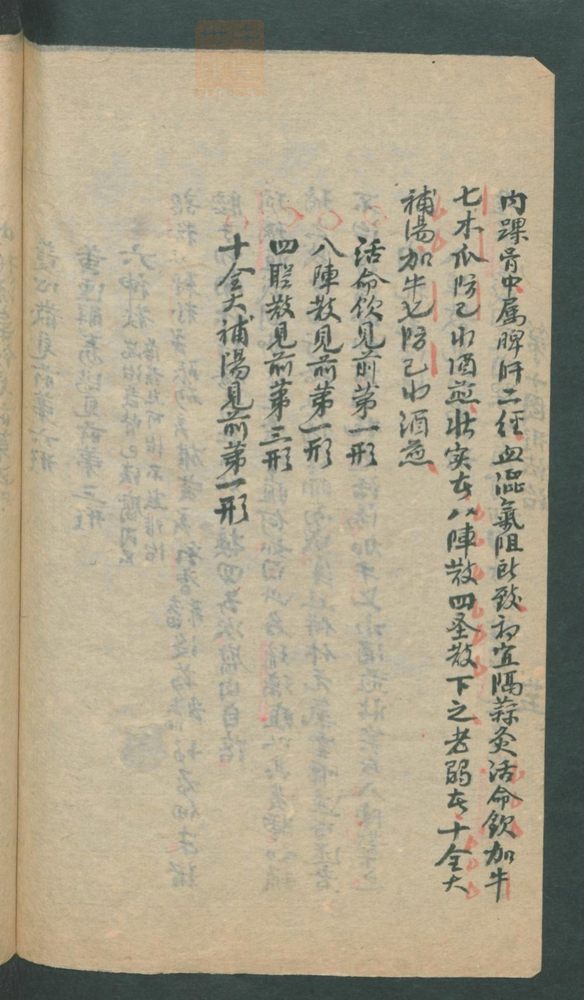 內踝骨中属脾肝二经血澀氣阻所致初宜隔蒜灸活命飲加牛
七木瓜防己水酒煎壮实者八陣散四圣散下之老弱者十全大
補湯加牛七防己水酒煎
活命飲見前第一形
八陣散見前第一形
四聖散見前第三形
十全大補湯見前第一形